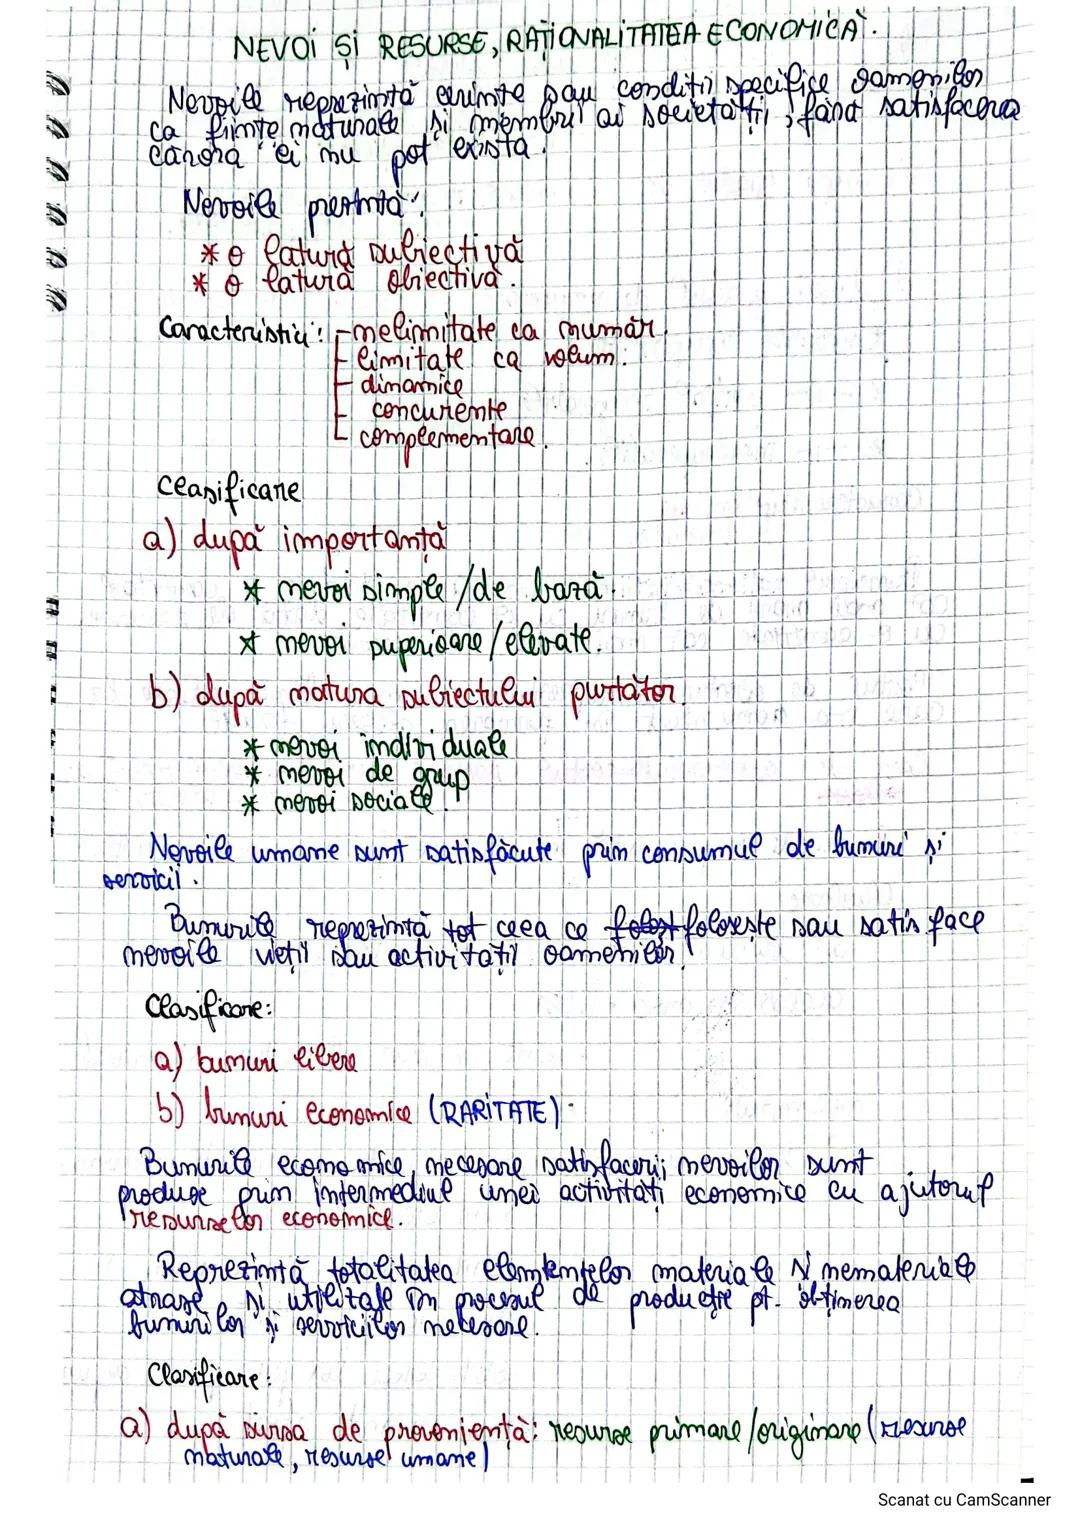 NEVOI ȘI RESURSE, RAȚIONALITATEA ECONOMICĂ.
Nevoile reprezintă cerințe sau condiții specifice oamenilor
ca ființe naturale și membri ai societății, fără satisfacerea
cărora ei nu pot exista.
Nevoile prezintă:
* o latură subiectivă
* o latură obiectivă.
Caracteristici: - nelimitate ca număr.
- limitate ca volum.
- dinamice
- concurente
- complementare.
Clasificare
a) după importanță
* nevoi simple / de bază.
* nevoi superioare / elevate.
b) după natura subiectului purtător.
* nevoi individuale
* nevoi de grup
* nevoi sociale.
Nevoile umane sunt satisfăcute prin consumul de bunuri și
servicii.
Bunurile reprezintă tot ceea ce folosește sau satisface
nevoile vieții sau activității oamenilor.
Clasificare:
a) bunuri libere
b) bunuri economice (RARITATE).
Bunurile economice, necesare satisfacerii nevoilor sunt
produse prin intermediul unei activități economice cu ajutorul
resurselor economice.
Reprezintă totalitatea elementelor materiale și nemateriale
atrase și utilitate în procesul de producție pt. obținerea
bunurilor și serviciilor necesare.
Clasificare:
a) după sursa de proveniență: resurse primare/originare (resurse
naturale, resurse umane)
Scanat cu CamScanner